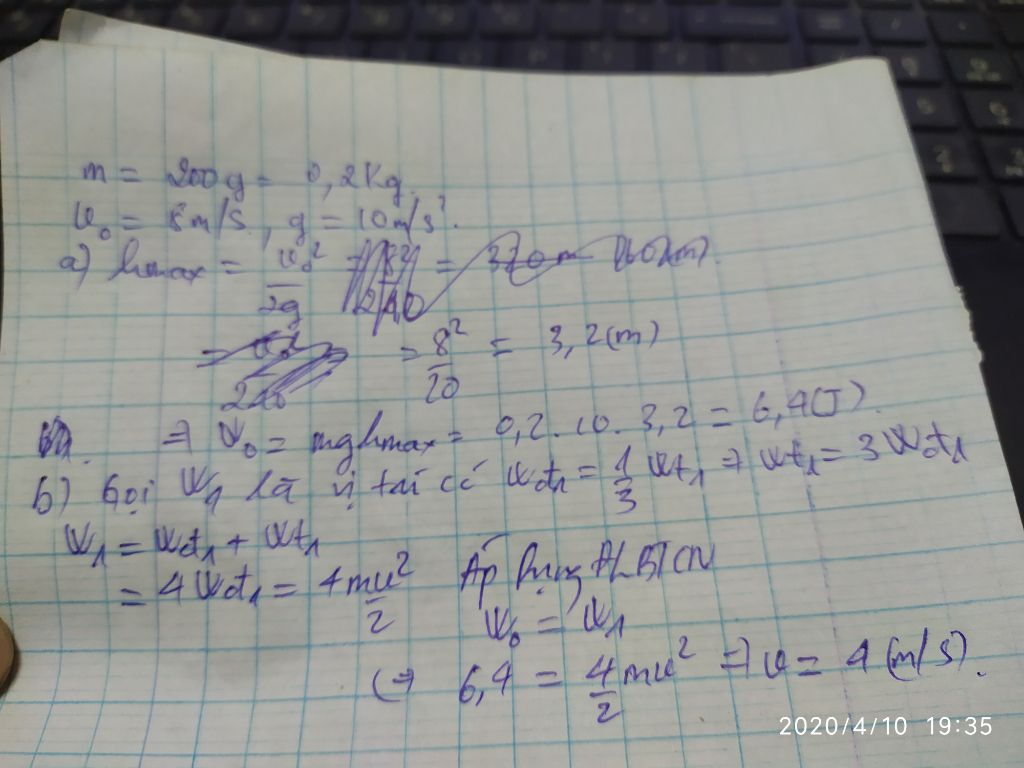 m = 200g = 0,2Kg.
v₀ = 8m/s, g = 10m/s².
a) hmax = v₀²/2g
= 8²/20 = 3,2(m)
⇒ W₀ = mghmax = 0,2.10.3,2 = 6,4(J).
b) Gọi W₁ là vị trí có Wđ₁ = 1/3 Wt₁ ⇒ Wt₁ = 3Wđ₁
W₁ = Wđ₁ + Wt₁
= 4Wđ₁ = 4mv²/2 Áp dụng ĐLBTCN
W₀ = W₁
(⇒ 6,4 = 4/2 mv² ⇒ v = 4(m/s).
2020/4/10 19:35